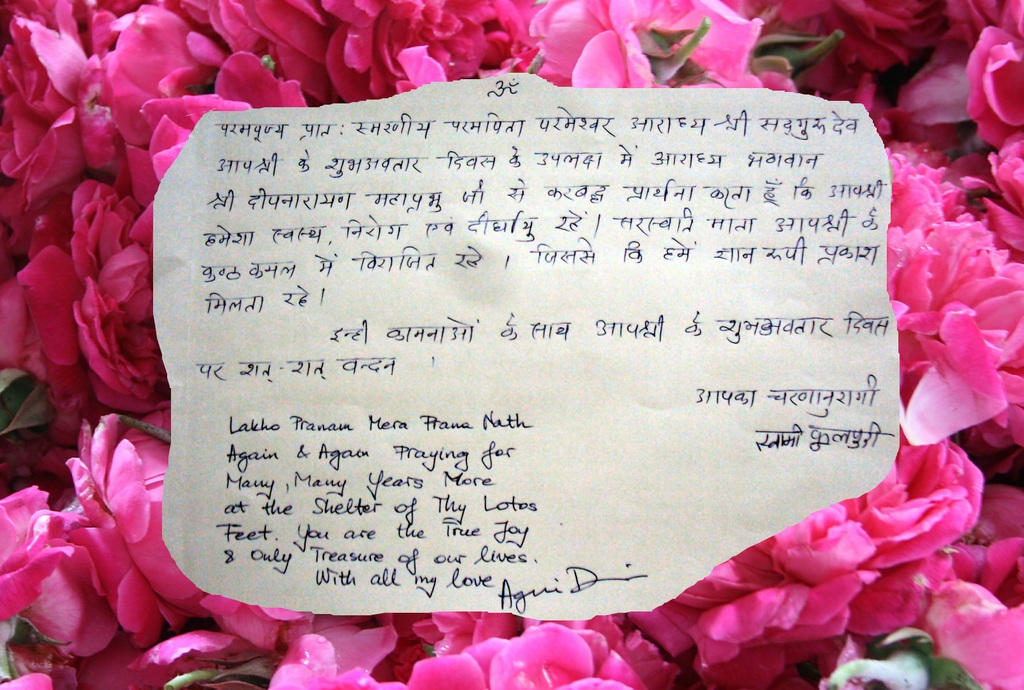 ॐ
परमपूज्य प्रातः स्मरणीय परमपिता परमेश्वर आराध्य श्री सद्गुरु देव
आपश्री के शुभअवतार दिवस के उपलक्ष में आराध्य भगवान
श्री दीपनारायण महाप्रभु जी से करबद्ध प्रार्थना करता हूँ कि आपश्री
हमेशा स्वस्थ, निरोग एवं दीर्घायु रहें। सरस्वति माता आपश्री के
कण्ठ कमल में विराजित रहे । जिससे कि हमें ज्ञान रूपी प्रकाश
मिलता रहे।
इन्ही कामनाओं के साथ आपश्री के शुभअवतार दिवस
पर शत्-शत् वन्दन ।
आपका चरणानुरागी
स्वामी फूलपुरी
Lakho Pranam Mera Prana Nath
Again & Again Praying for
Many, Many Years More
at the Shelter of Thy Lotos
Feet. You are the True Joy
& Only Treasure of our lives.
With all my love Agni